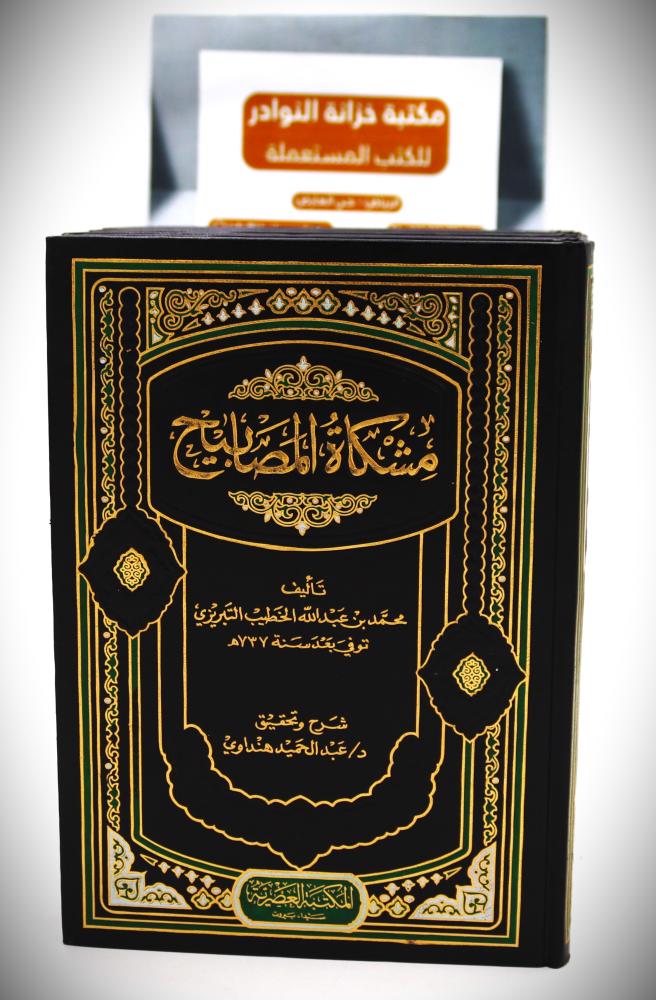 مكتبة خزانة النوادر
للكتب المستعملة
مِشْكَاةُ المَصَابِيح
تَأليف
محمَّد بن عَبْد الله الخَطيْب التبريزي
توفي بَعْد سَنة ٧٣٧هـ
شَرح وتحقيق
د/ عَبْد الحَميْد هنداوي
المكتبة العصرية
صَيدا - بيروت